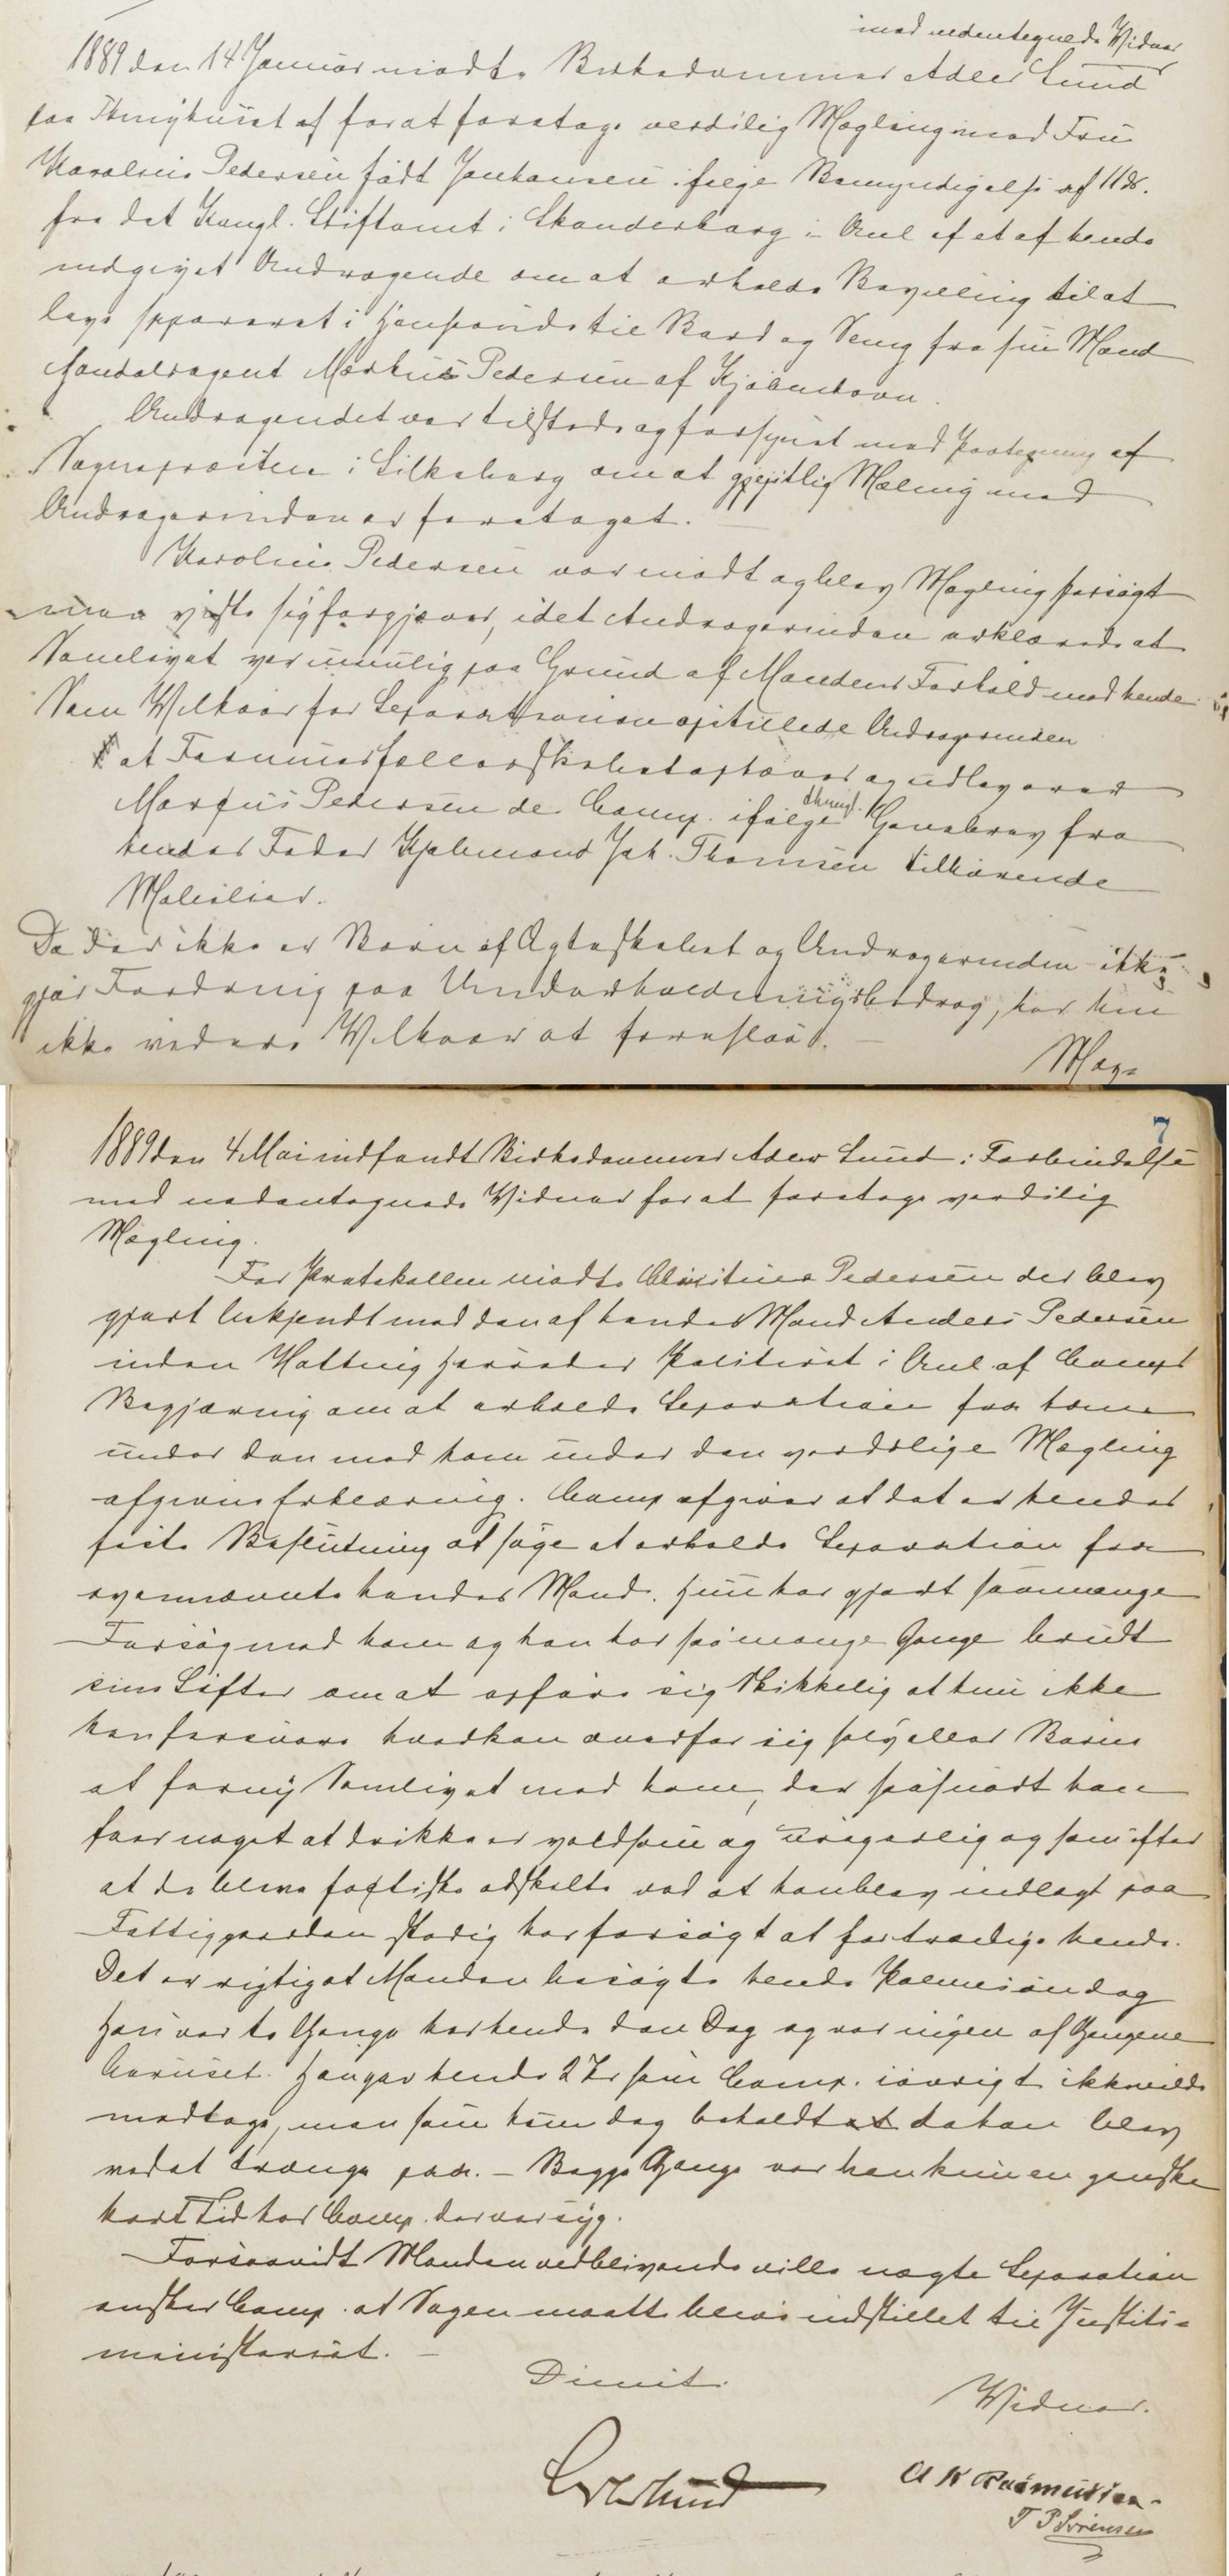 med undertegnede Vidner
1889 den 14 Januar mødte Birkedommer Adler Lund
paa Thinghuset af for at foretage verdslig Mægling med Fru
Karoline Pedersen født Johansen ifølge Bemyndigelse af 11 ds.
fra det Kongl. Stiftamt i Skanderborg i Anl af et af hende
indgivet Andragende om at erholde Bevilling til at
leve separeret i Henseende til Bord og Seng fra sin Mand
Handelsagent Markus Pedersen af Kjøbenhavn.
Andragendet var tilstede og forsynet med Paategning af
Sognepræsten i Silkeborg om at gejstlig Mæling med
Andragerinden er foretaget.
Karoline Pedersen var mødt og blev Mægling forsøgt
men viste sig forgjæves, idet Andragerinden erklærede at
Samlivet var umulig paa Grund af Mandens Forhold mod hende
Som Vilkaar for Separationen opstillede Andragerinden
at Formuesfællesskabet ophæves og udleverer
Markus Pedersen de Comp. ifølge Gavebrev fra
hendes Fader Kjøbmand Joh. Thomsen tilhørende
Mobilier.
Da der ikke er Børn af Ægteskabet og Andragerinden ikke
gjør Fordring paa Underholdningsbidrag, har hun
ikke videre Vilkaar at foreslaa. –
Mæg=
7
1889 den 4 Mai indfandt Birkedommer Adler Lund i Forbindelse
med nedentegnede Vidner for at foretage verdslig
Mægling.
For Protokollen mødte Christine Pedersen der blev
gjort bekjendt med den af hendes Mand Anders Pedersen
inden Hatting Herreders Politiret i Anl af Comps
Begjæring om at erholde Separation fra ham
under den med ham under den verdslige Mægling
afgivne Erklæring. Comp afgiver at det er hendes
faste Beslutning at søge at erholde Separation fra
ovennævnte hendes Mand. Hun har gjort saamange
Forsøg med ham og han har så mange Gange brudt
sine Løfter om at opføre sig skikkelig at hun ikke
kan forsvare hverken overfor sig selv eller Børn
at forny Samlivet med ham, der såsnart han
faar noget at drikke er voldsom og uregerlig og som efter
at de bleve faktiske adskilte ved at han blev indlagt paa
Fattiggaarden stadig har forsøgt at fortrædige hende.
Det er rigtigt at Manden besøgte hende Palmesøndag
Han var to Gange hos hende den Dag og var ingen af Gangene
beruset. Han gav hende 2 Kr som Comp. iøvrigt ikke vilde
modtage, men som hun dog beholdt da han blev
ved at trænge paa. – Begge Gange var han kun en ganske
kort Tid hos Comp. der var syg.
Forsaavidt Manden vedblivende ville nægte Separation
ønsker Comp. at Sagen maatte blive indstillet til Justits=
ministeriet. –
Dimit.
Vidner.
Lund
A K Rasmussen
T P Sørensen